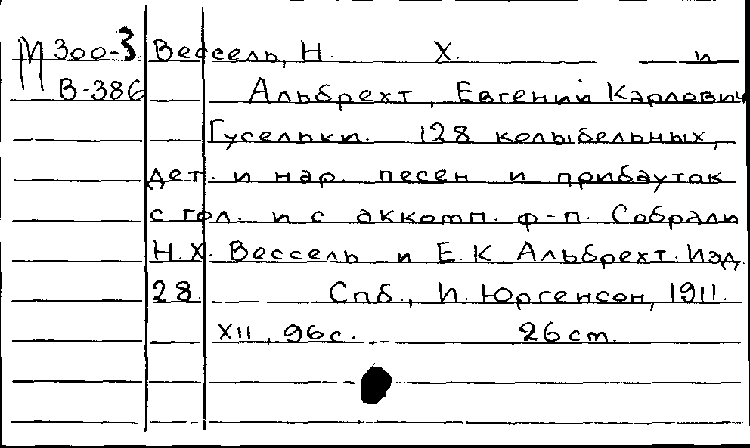 М 300-3 Вессель, Н. Х. и
В-386 Альбрехт, Евгений Карлович
Гусельки. 128 колыбельных,
дет. и нар. песен и прибауток
с гол. и с аккомп. ф-п. Собрали
Н.Х. Вессель и Е.К Альбрехт. Изд.
28. Спб., И. Юргенсон, 1911.
XII, 96 с. 26 ст.